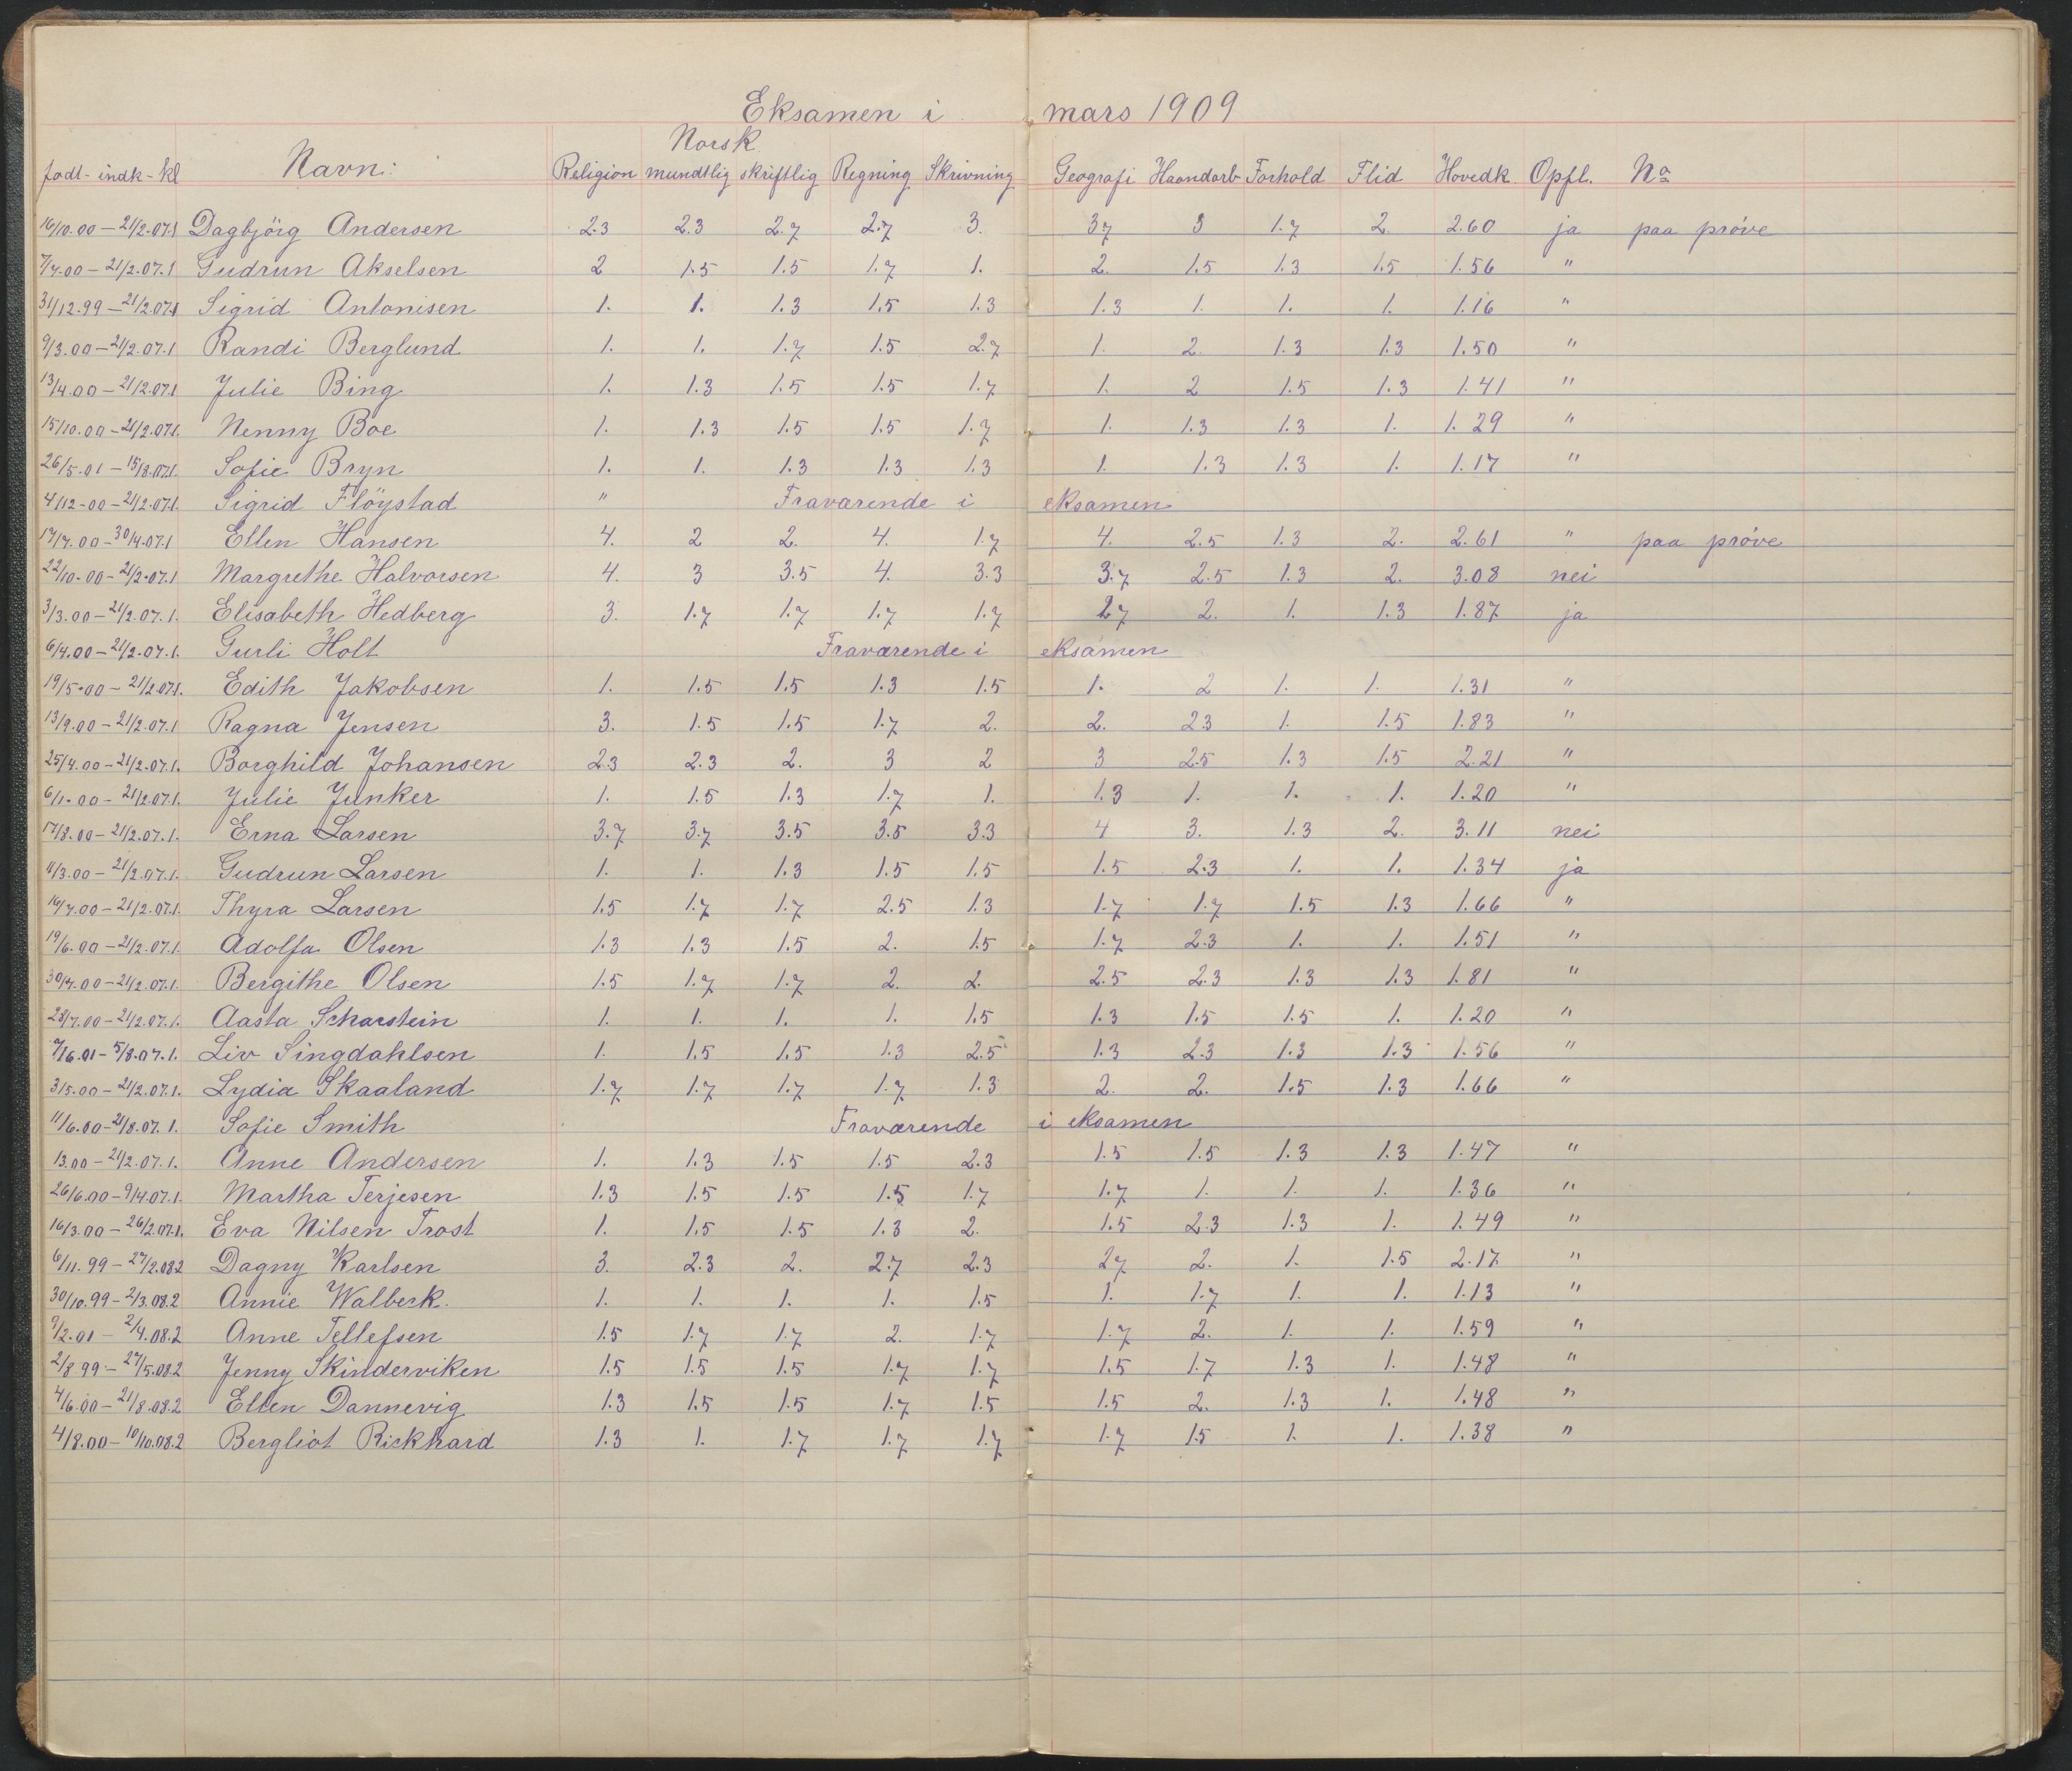 Eksamen i mars 1909
Norsk
født- indk-kl Navn: Religion mundtlig skriftlig Regning Skrivning Geografi Haandarb Forhold Flid Hovedk. Opfl. No
16/10.00 — 21/2.07.1 Dagbjörg Andersen 2.3 2.3 2.7 2.7 3. 3.7 3 1.7 2. 2.60 ja paa prøve
7/7.00 — 21/2.07.1 Gudrun Akselsen 2 1.5 1.5 1.7 1. 2. 1.5 1.3 1.5 1.56 "
31/12.99 — 21/2.07.1 Sigrid Antonisen 1. 1. 1.3 1.5 1.3 1.3 1. 1. 1. 1.16 "
9/3.00 — 21/2.07.1 Randi Berglund 1. 1. 1.7 1.5 2.7 1. 2. 1.3 1.3 1.50 "
13/4.00 — 21/2.07.1 Julie Bing 1. 1.3 1.5 1.5 1.7 1. 2 1.5 1.3 1.41 "
15/10.00 — 21/2.07.1. Nenny Boe 1. 1.3 1.5 1.5 1.7 1. 1.3 1.3 1. 1.29 "
26/5.01 — 15/8.07.1. Sofie Bryn 1. 1. 1.3 1.3 1.3 1. 1.3 1.3 1. 1.17 "
4/12-00 — 21/2.07.1. Sigrid Flöystad " Fraværende i eksamen
17/7.00 — 30/4.07.1 Ellen Hansen 4. 2 2. 4. 1.7 4. 2.5 1.3 2. 2.61 " paa prøve
22/10.00 — 21/2.07.1 Margrethe Halvorsen 4. 3 3.5 4. 3.3 3.7 2.5 1.3 2. 3.08 nei
3/3.00 — 21/2.07.1. Elisabeth Hedberg 3. 1.7 1.7 1.7 1.7 2.7 2. 1. 1.3 1.87 ja
6/4.00 — 21/2.07.1. Gurli Holt Fraværende i eksamen
19/5.00 — 21/2.07.1. Edith Jakobsen 1. 1.5 1.5 1.3 1.5 1. 2 1. 1. 1.31 "
13/9.00 — 21/2.07.1 Ragna Jensen 3. 1.5 1.5 1.7 2. 2. 2.3 1. 1.5 1.83 "
25/4.00 — 21/2.07.1. Borghild Johansen 2.3 2.3 2. 3 2 3 2.5 1.3 1.5 2.21 "
6/1.00 — 21/2.07.1. Julie Junker 1. 1.5 1.3 1.7 1. 1.3 1. 1. 1. 1.20 "
17/8.00 — 21/2.07.1. Erna Larsen 3.7 3.7 3.5 3.5 3.3 4 3. 1.3 2. 3.11 nei
11/3.00 — 21/2.07.1. Gudrun Larsen 1. 1. 1.3 1.5 1.5 1.5 2.3 1. 1. 1.34 ja
16/7.00 — 21/2.07.1. Thyra Larsen 1.5 1.7 1.7 2.5 1.3 1.7 1.7 1.5 1.3 1.66 "
19/6.00 — 21/2.07.1. Adolfa Olsen 1.3 1.3 1.5 2. 1.5 1.7 2.3 1. 1. 1.51 "
30/7.00 — 21/2.07.1. Bergithe Olsen 1.5 1.7 1.7 2. 2. 2.5 2.3 1.3 1.3 1.81 "
28/7.00 — 21/2.07.1. Aasta Scharstein 1. 1. 1. 1. 1.5 1.3 1.5 1.5 1. 1.20 "
7/6.01 — 5/8.07.1. Liv Singdahlsen 1. 1.5 1.5 1.3 2.5 1.3 2.3 1.3 1.3 1.56 "
3/5.00 — 21/2.07.1. Lydia Skaaland 1.7 1.7 1.7 1.7 1.3 2. 2. 1.5 1.3 1.66 "
11/6.00 — 21/8.07.1. Sofie Smith Fraværende i eksamen
13.00 — 21/2.07.1. Anne Andersen 1. 1.3 1.5 1.5 2.3 1.5 1.5 1.3 1.3 1.47 "
26/6.00 — 9/4.07.1. Martha Terjesen 1.3 1.5 1.5 1.5 1.7 1.7 1. 1. 1. 1.36 "
16/3.00 — 26/2.07.1. Eva Nilsen Trost 1. 1.5 1.5 1.3 2. 1.5 2.3 1.3 1. 1.49 "
6/11.99 — 27/2.08.2 Dagny Karlsen 3. 2.3 2. 2.7 2.3 2.7 2. 1. 1.5 2.17. "
30/10.99 — 2/3.08.2 Annie Walberk. 1. 1. 1. 1. 1.5 1. 1.7 1. 1. 1.13 "
9/2.01 — 2/4.08.2 Anne Tellefsen 1.5 1.7 1.7 2. 1.7 1.7 2. 1. 1. 1.59 "
2/8.99 — 27/5.08.2 Jenny Skinderviken 1.5 1.5 1.5 1.7 1.7 1.5 1.7 1.3 1. 1.48 "
4/6.00 — 21/8.08.2 Ellen Dannevig 1.3 1.5 1.5 1.7 1.5 1.5 2. 1.3 1. 1.48 "
4/8.00 — 10/10.08.2 Bergliot Rickhard 1.3 1. 1.7 1.7 1.7 1.7 1.5 1. 1. 1.38 "